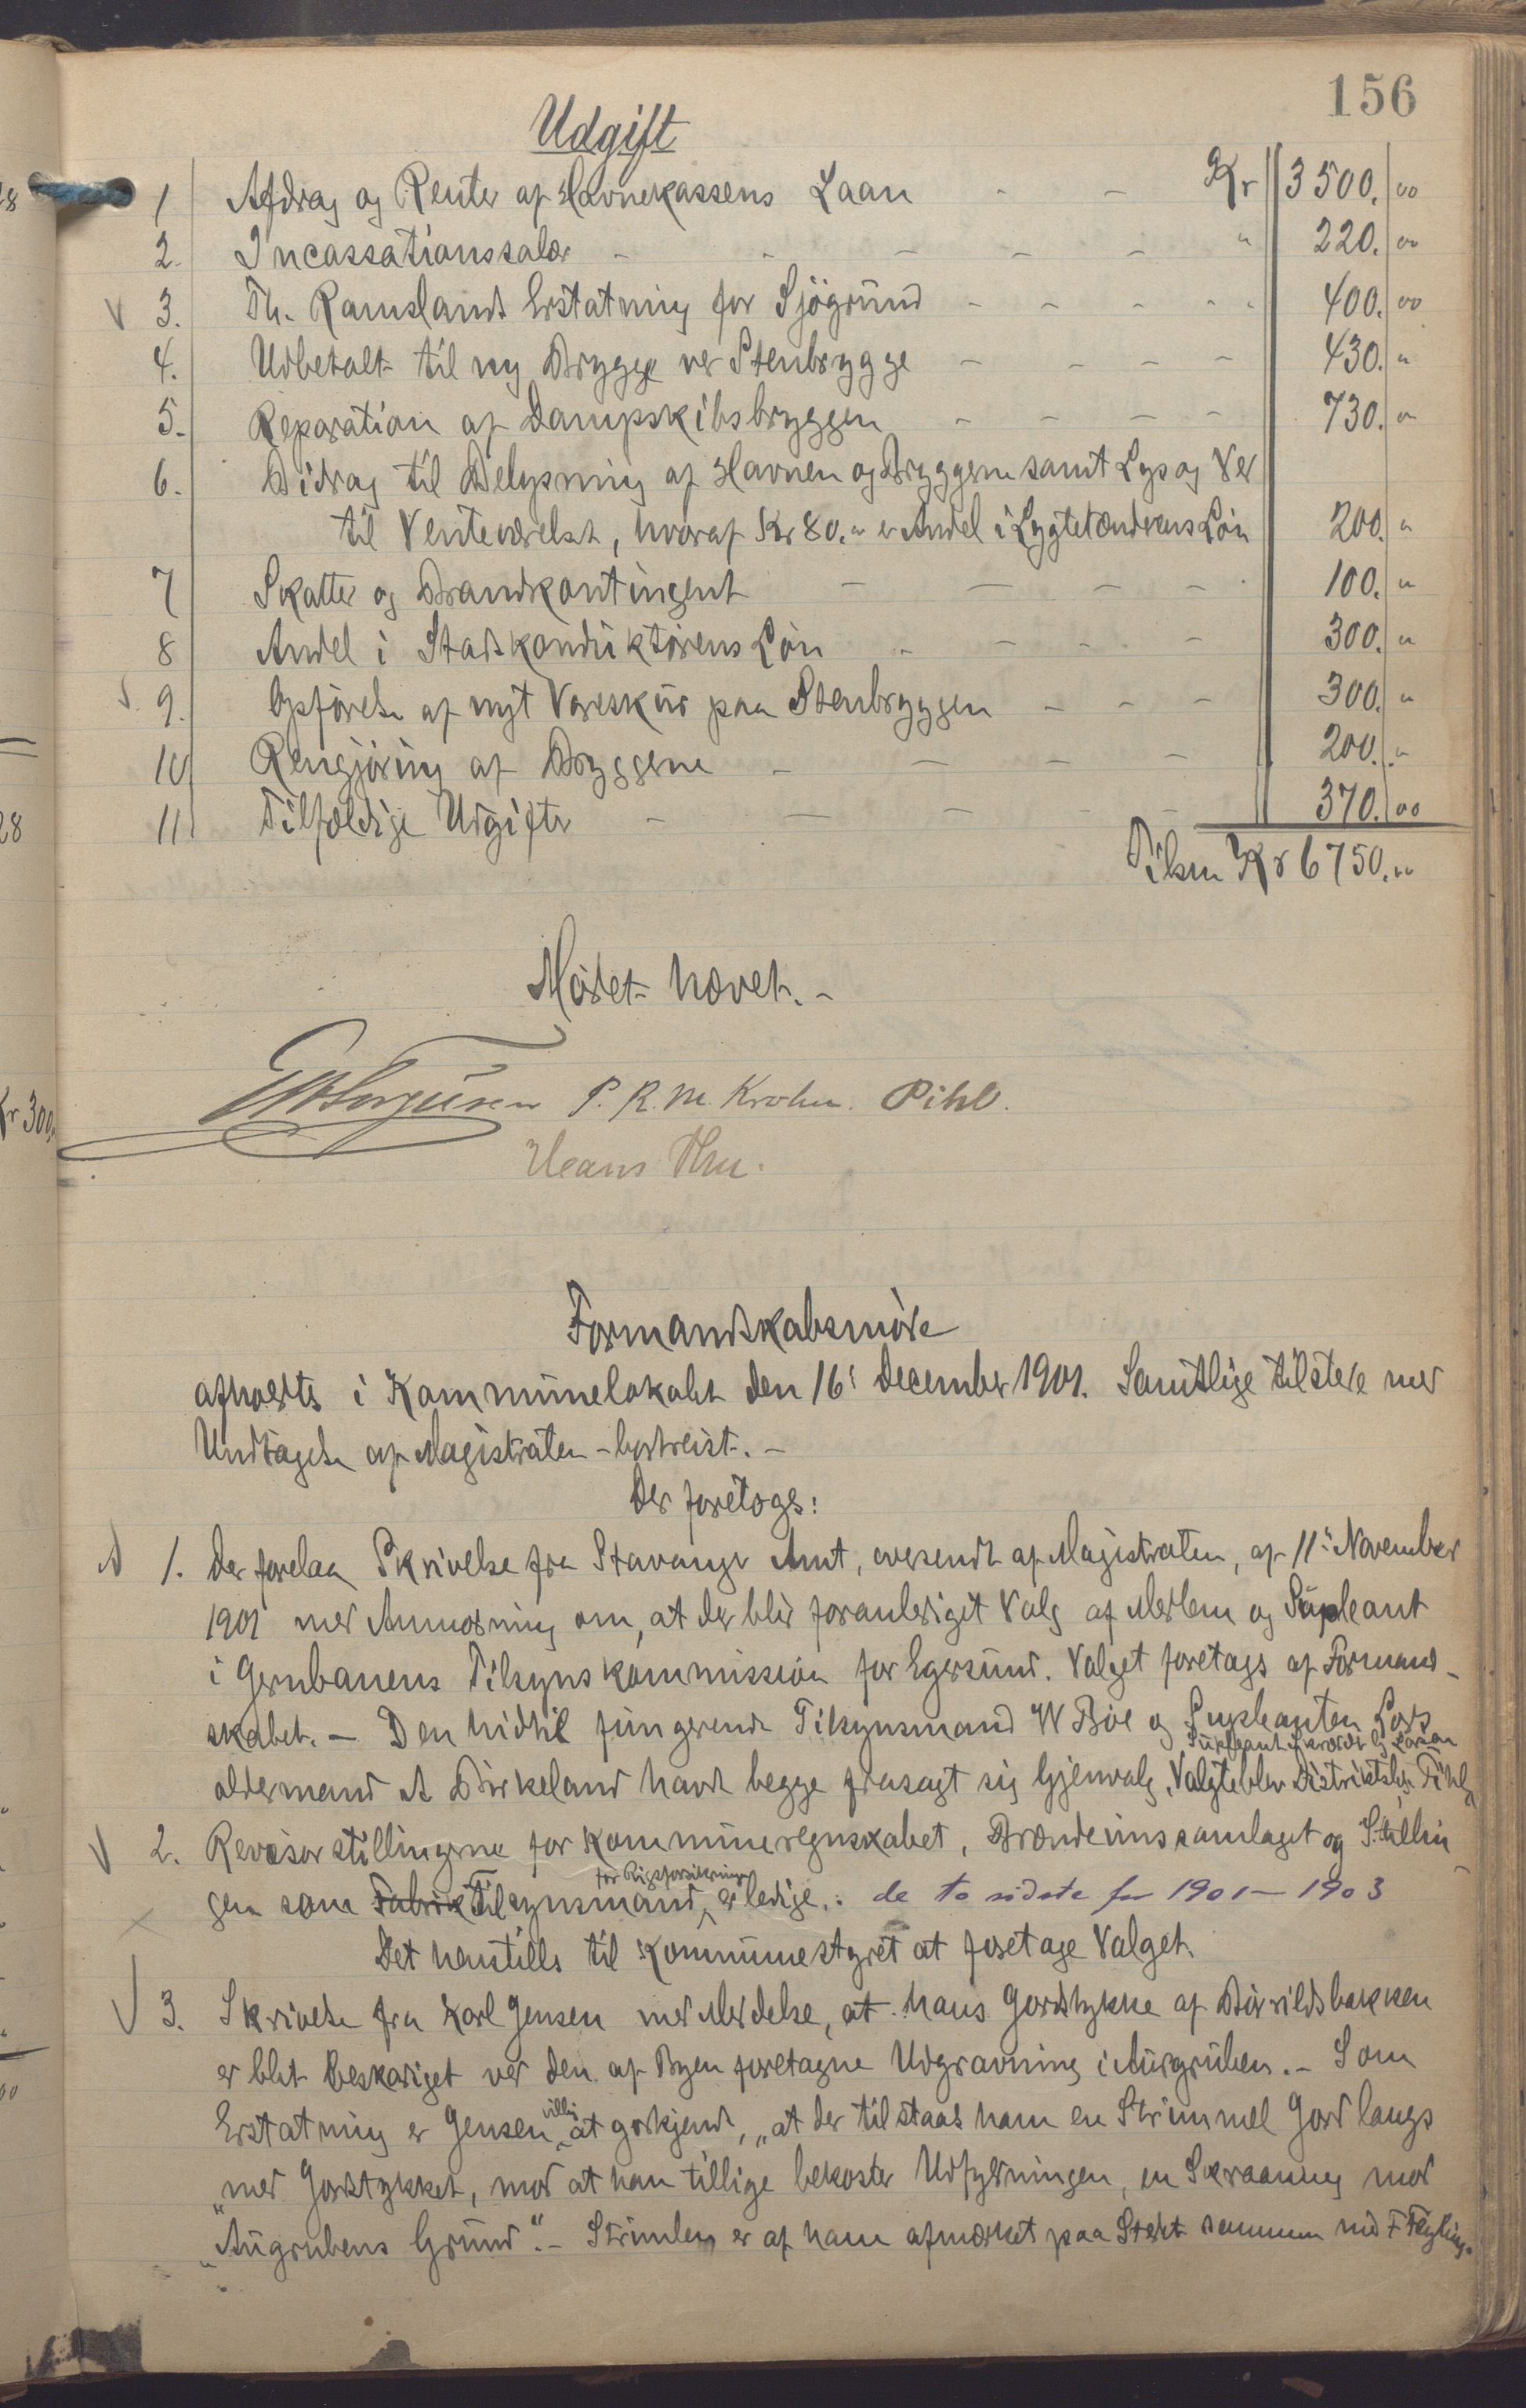 156
Udgift
1 Afdrag og Renter af Havnekassens Laan - - Kr 3500. 00
2. Incassationssalær - - - - - " 220. 00
V 3. Th. Ramslands Erstatning for Sjøgrund - - - - - 400. 00
4. Udbetalt til ny Brygge ved Stenbrygge - - - - 430. "
5. Reparation af Dampskibsbryggen - - - - 730. "
6. Bidrag til Belysning af Havnen og Bryggerne samt Lys og Ved
til Venteværelset, hvoraf Kr 80." er Andel i Lygtetændrens Løn 200. "
7 Skatter og Brandkontingent - - - - 100. "
8 Andel i Stadskonduktørens Løn - - - - 300. "
9. Opførelse af nyt Vareskur paa Stenbryggen - - - 300. "
10 Rengjøring af Bryggerne - - - - 200. "
11 Tilfældige Udgifter - - - - - 370. 00
Tilsm Kr 6750. "
Mødet hævet. -
P. R. M. Krohn. Pihl.
Hans Thu.
Formandskabsmøde
afholdtes i Kommunelokalet den 16' December 1901. Samtlige tilstede med
Undtagelse af Magistraten - bortreist. -
Der foretoges:
1. Der forelaa Skrivelse fra Stavanger Amt, oversendt af Magistraten, af 11' November
1901 med Anmodning om, at der blir foranlediget Valg af Medlem og Supleant
i Jernbanens Tilsynskommission for Egersund. Valget foretages af Formand-
skabet. - Den hidtil fungerende Tilsynsmand W Boe og Supleanten Lods
Supleant Skrædder Larsen
oldermand A Birkeland havde begge frasagt sig Gjenvalg. Valgte blev Distriktslæge Pihl,
V 2. Revisorstillingerne for Kommuneregnskabet, Brændevinssamlaget og Stillin-
for Rigsforsikringen
gen som Fabrik Tilsynsmand, er ledige. de to sidste for 1901-1903
Det henstilles til Kommunestyret at foretage Valget.
V 3. Skrivelse fra Karl Jensen med Meddelse, at hans Jordstykke af Bøvildsbakken
er blet beskadiget ved den af Byen foretagne Udgravning i Aurgruben. - Som
villig
Erstatning er Jensen at godkjende, "at der tilstaaes ham en Strimmel Jord langs
"med Jordstykket, mod at han tillige bekoster Udfyldningen, en Skraaning mod
"Augrubens Grund". - Strimlen er af ham afmærket paa Stedet sammen med F Feyling.